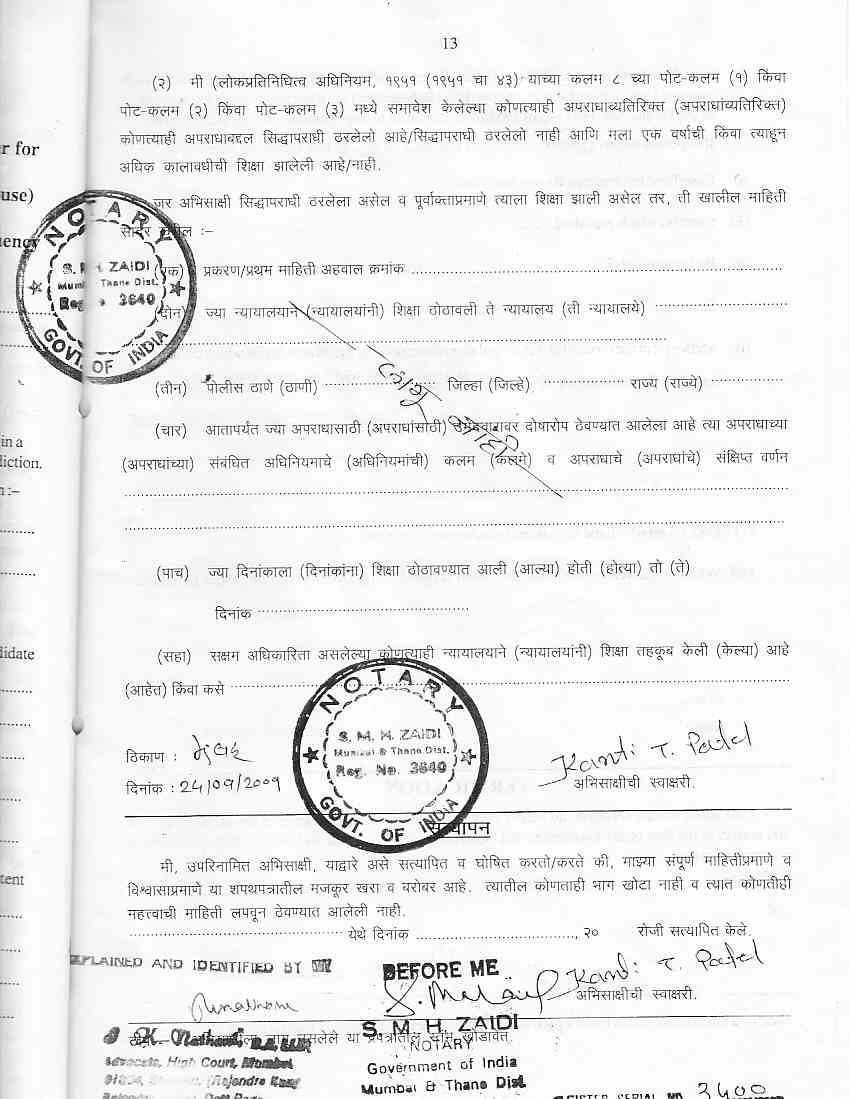 13
(२) मी (लोकप्रतिनिधित्व अधिनियम, १९५१ (१९५१ चा ४३) याच्या कलम ८ च्या पोट-कलम (१) किंवा
पोट-कलम (२) किंवा पोट-कलम (३) मध्ये समावेश केलेल्या कोणत्याही अपराधाव्यतिरिक्त (अपराधांव्यतिरिक्त)
कोणत्याही अपराधाबद्दल सिद्धापराधी ठरलेलो आहे/सिद्धापराधी ठरलेलो नाही आणि मला एक वर्षाची किंवा त्याहून
अधिक कालावधीची शिक्षा झालेली आहे/नाही.
r for
use)
ency
जर अभिसाक्षी सिद्धापराधी ठरलेला असेल व पूर्वोक्ताप्रमाणे त्याला शिक्षा झाली असेल तर, ती खालील माहिती
सादर :–
NOTARY
S. M. H. ZAIDI
Mumbai & Thane Dist.
Reg. No. 3640
GOVT. OF INDIA
(एक) प्रकरण/प्रथम माहिती अहवाल क्रमांक
(दोन) ज्या न्यायालयाने (न्यायालयांनी) शिक्षा ठोठावली ते न्यायालय (ती न्यायालये)
(तीन) पोलीस ठाणे (ठाणी) जिल्हा (जिल्हे) राज्य (राज्ये)
लागू नाही
(चार) आतापर्यंत ज्या अपराधासाठी (अपराधांसाठी) उमेदवारावर दोषारोप ठेवण्यात आलेला आहे त्या अपराधाच्या
(अपराधांच्या) संबंधित अधिनियमाचे (अधिनियमांची) कलम (कलमे) व अपराधाचे (अपराधांचे) संक्षिप्त वर्णन
in a
diction.
:–
(पाच) ज्या दिनांकाला (दिनांकांना) शिक्षा ठोठावण्यात आली (आल्या) होती (होत्या) तो (ते)
दिनांक
(सहा) सक्षम अधिकारिता असलेल्या कोणत्याही न्यायालयाने (न्यायालयांनी) शिक्षा तहकूब केली (केल्या) आहे
(आहेत) किंवा कसे
didate
NOTARY
S. M. H. ZAIDI
Mumbai & Thane Dist.
Reg. No. 3640
GOVT. OF INDIA
ठिकाण : मुंबई
दिनांक : 24/09/2009
Kanti T. Patel
अभिसाक्षीची स्वाक्षरी.
सत्यापन
मी, उपरिनामित अभिसाक्षी, याद्वारे असे सत्यापित व घोषित करतो/करते की, माझ्या संपूर्ण माहितीप्रमाणे व
विश्वासाप्रमाणे या शपथपत्रातील मजकूर खरा व बरोबर आहे. त्यातील कोणताही भाग खोटा नाही व त्यात कोणतीही
महत्त्वाची माहिती लपवून ठेवण्यात आलेली नाही.
tent
येथे दिनांक , २० रोजी सत्यापित केले.
EXPLAINED AND IDENTIFIED BY
BEFORE ME
Kanti T. Patel
अभिसाक्षीची स्वाक्षरी.
नसलेले या प्रपत्रातील खोडावेत.
S M H ZAIDI
NOTARY
Government of India
Mumbai & Thane Dist.
K. Nathani
Advocate, High Court, Mumbai
3400